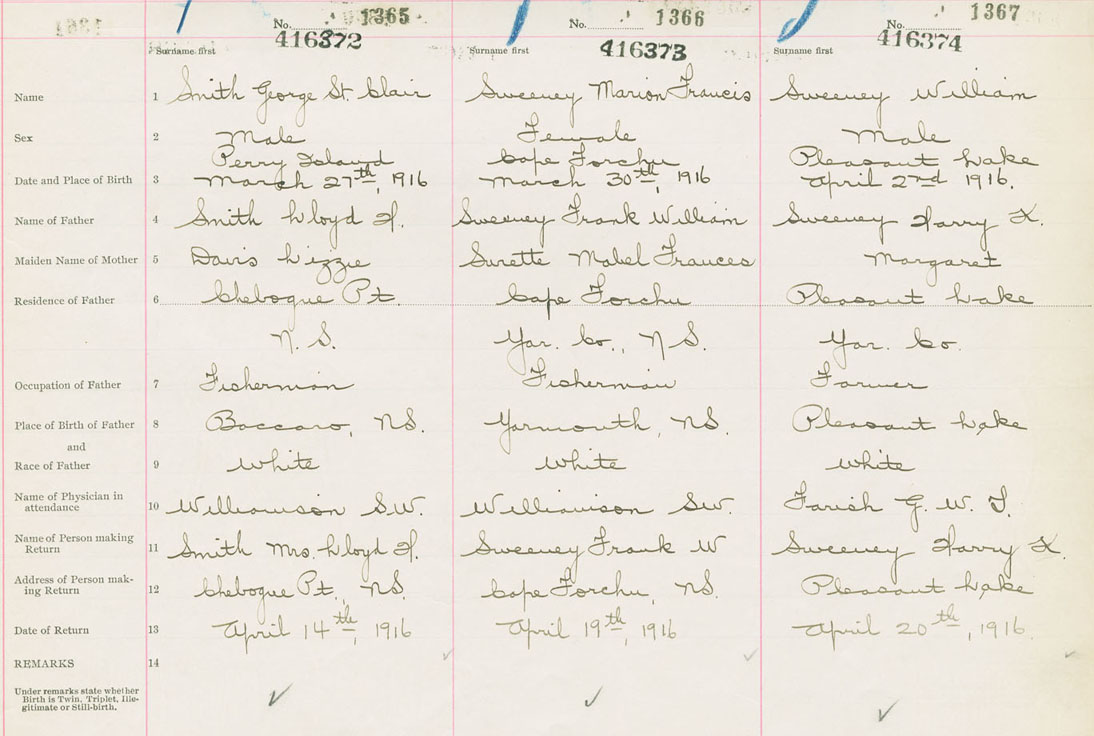 1365
1366
1367
No.
No.
No.
416372
416373
416374
Surname first
Surname first
Surname first
Name 1 Smith George St. Clair Sweeney Marion Francis Sweeney William
Sex 2 Male Female Male
Perry Island Cape Forchu Pleasant Lake
Date and Place of Birth 3 March 27th, 1916 March 30th, 1916 April 2nd 1916.
Name of Father 4 Smith Lloyd H. Sweeney Frank William Sweeney Harry K.
Maiden Name of Mother 5 Davis Lizzie Surette Mabel Frances Margaret
Residence of Father 6 Chebogue Pt. Cape Forchu Pleasant Lake
N. S. Yar. Co., N S. Yar. Co.
Occupation of Father 7 Fisherman Fisherman Farmer
Place of Birth of Father 8 Baccaro, N S. Yarmouth, N S. Pleasant Lake
and
Race of Father 9 White White White
Name of Physician in
attendance 10 Williamson S. W. Williamson S W. Farish G. W. T.
Name of Person making
Return 11 Smith Mrs. Lloyd H. Sweeney Frank W Sweeney Harry K.
Address of Person mak-
ing Return 12 Chebogue Pt., N S. Cape Forchu, N S. Pleasant Lake
Date of Return 13 April 14th, 1916 April 19th, 1916 April 20th, 1916.
REMARKS 14
Under remarks state whether
Birth is Twin, Triplet, Ille-
gitimate or Still-birth.